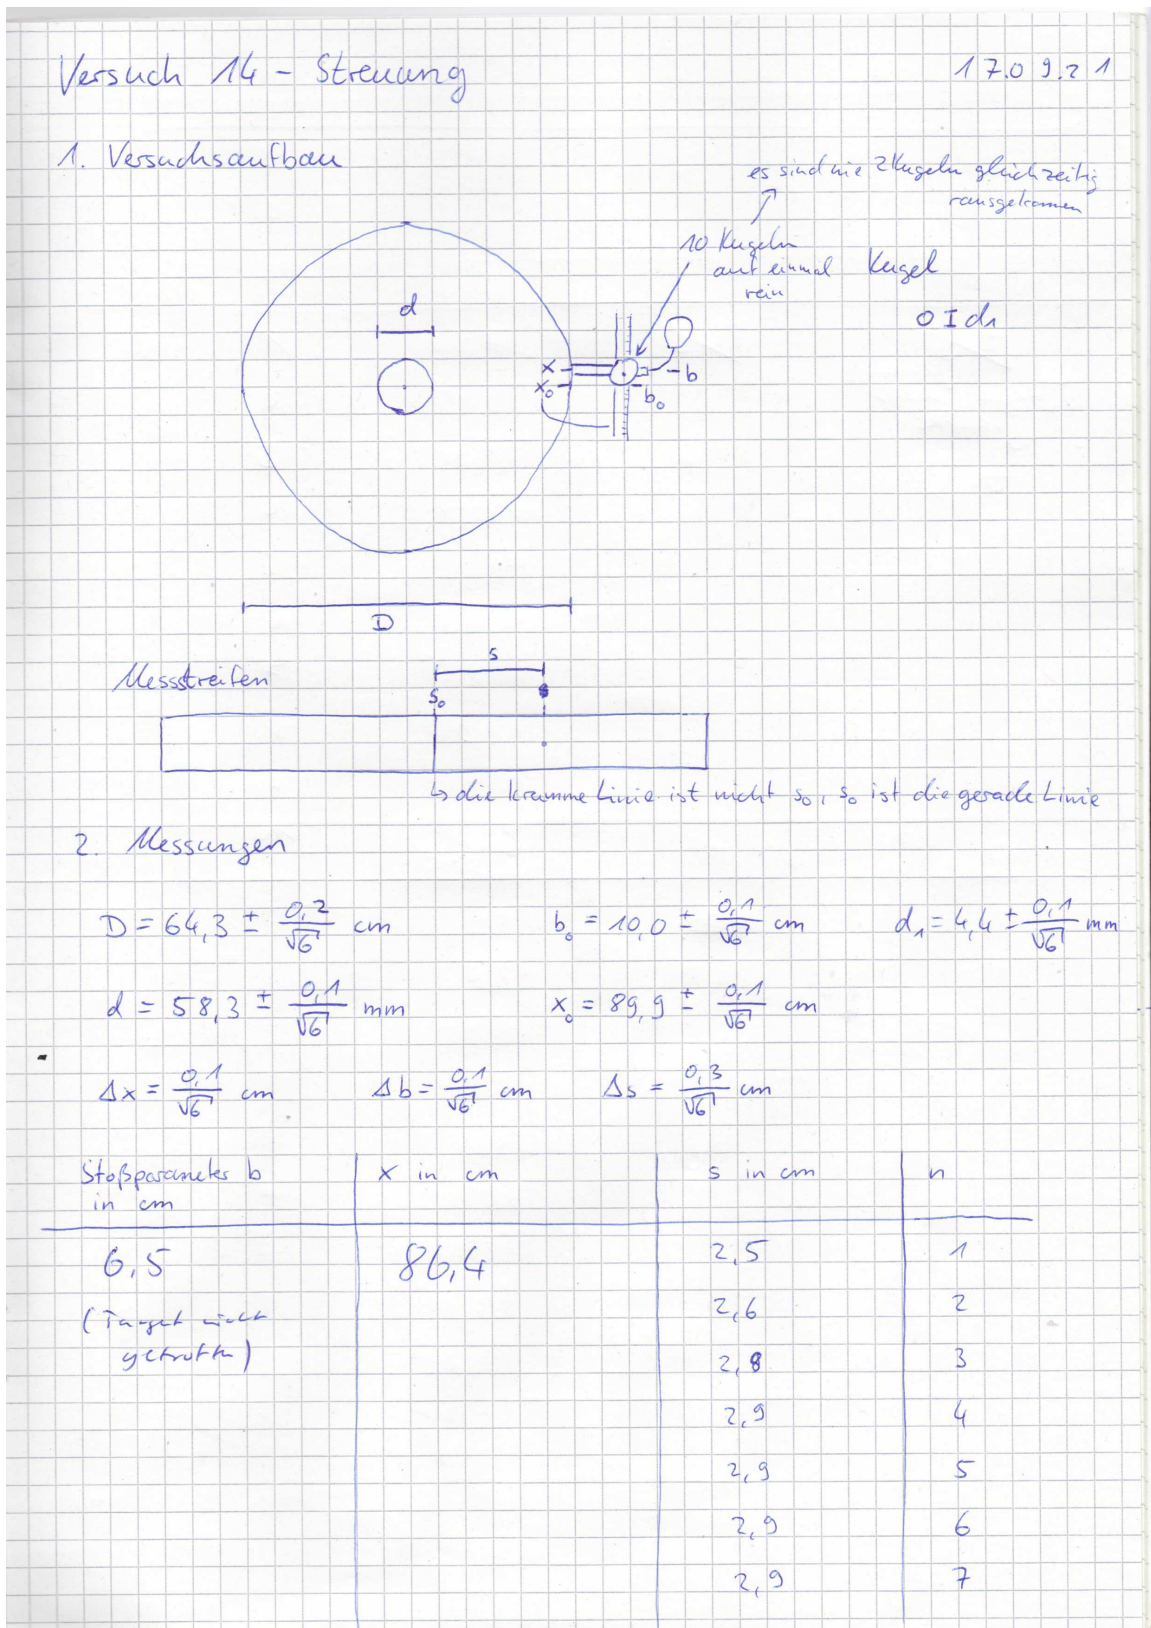 Versuch 14 - Streuung 17.09.21
1. Versuchsaufbau
es sind nie 2 Kugeln gleichzeitig
rausgekommen
10 Kugeln
auf einmal
rein
Kugel
d
d₁
x
x₀
b
b₀
D
Messstreifen
s
s₀
↳ die krumme Linie ist nicht s₀, s₀ ist die gerade Linie
2. Messungen
D = 64,3 ± 0,2/√6 cm b₀ = 10,0 ± 0,1/√6 cm d₁ = 4,4 ± 0,1/√6 mm
d = 58,3 ± 0,1/√6 mm x₀ = 89,9 ± 0,1/√6 cm
Δx = 0,1/√6 cm Δb = 0,1/√6 cm Δs = 0,3/√6 cm
Stoßparameter b x in cm s in cm n
in cm
6,5 86,4 2,5 1
(Target nicht 2,6 2
getroffen) 2,8 3
2,9 4
2,9 5
2,9 6
2,9 7